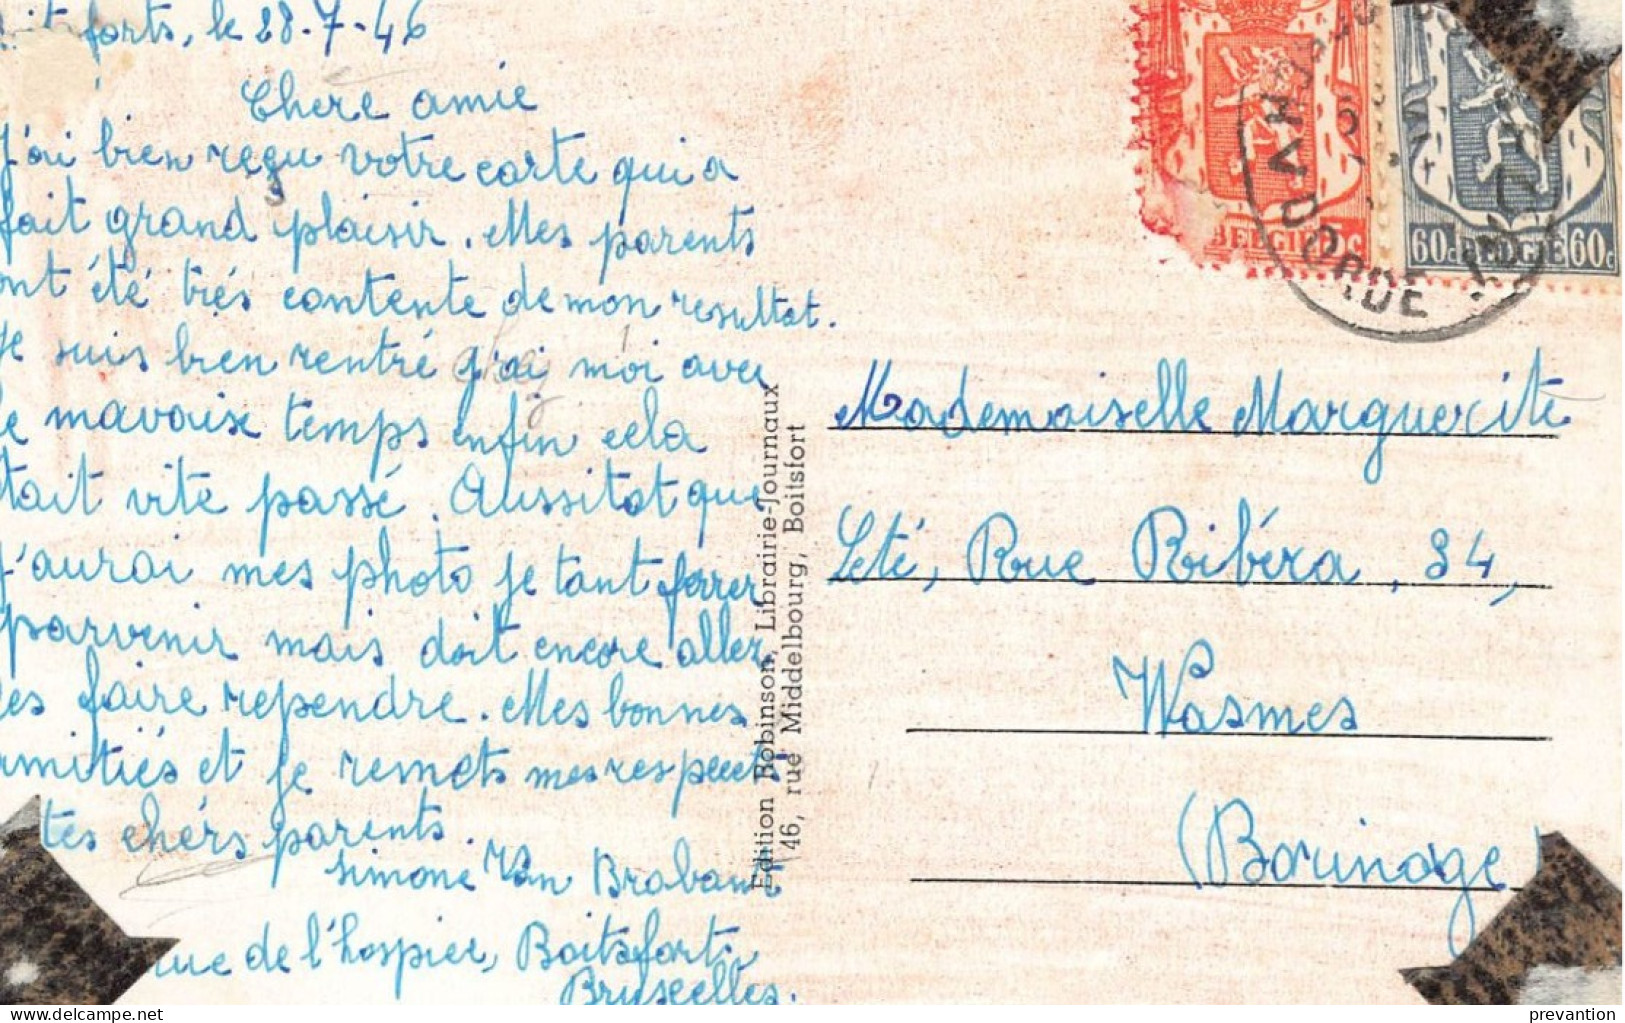 forts, le 28-7-46
Chere amie
J'ai bien reçu votre carte qui a
fait grand plaisir. Mes parents
ont été très contente de mon resultat.
Je suis bien rentré j'ai moi avec
le mavaise temps enfin cela
était vite passé. Aussitot que
j'aurai mes photo je tant ferrer
parvenir mais doit encore aller
les faire rependre. Mes bonnes
amitiés et je remets mes respects
tes chérs parents.
Simone Van Brabant
rue de l'hospier, Boitsfort,
Bruxelles.
Edition Bobinson, Librairie-Journaux
46, rue Middelbourg, Boitsfort
BELGIE
60c BELGIE 60c
Mademoiselle Marguerite
Leté, Rue Ribéra, 34,
Wasmes
(Borinage)
prevantion